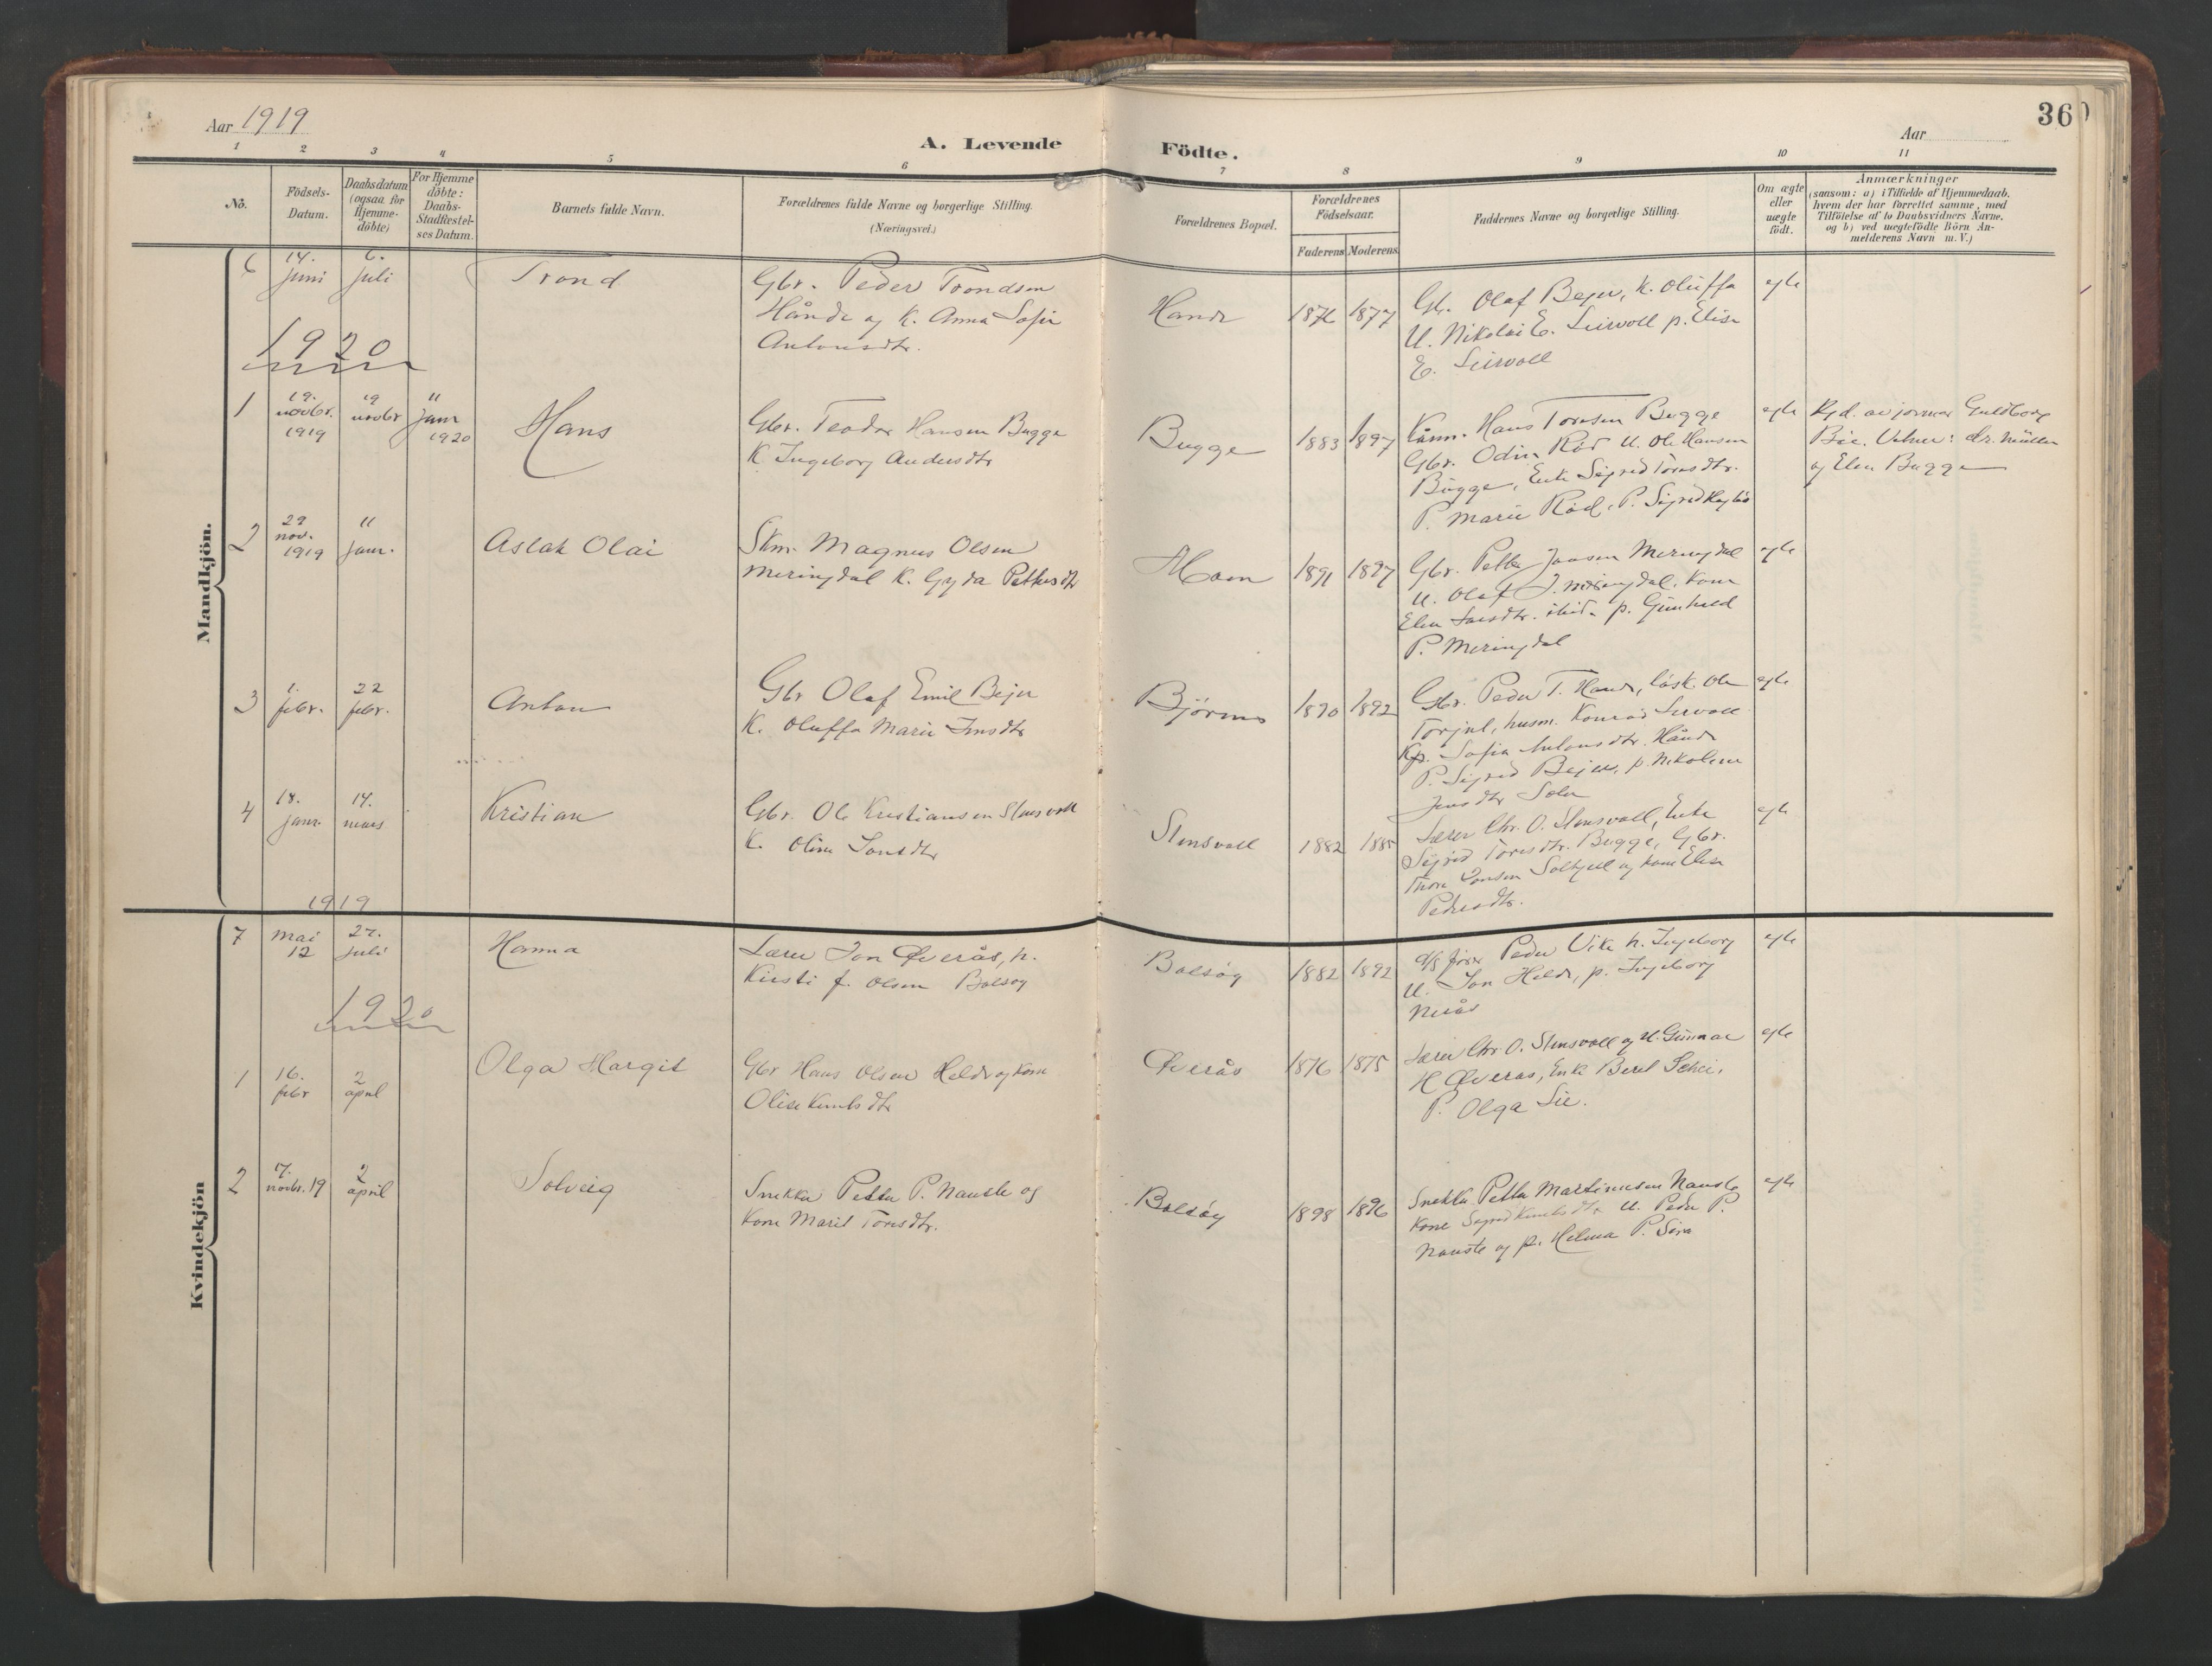 Aar 1919
A. Levende Födte.
36
Aar
1 2 3 4 5 6 7 8 9 10 11
No.
Födsels-
Datum.
Daabsdatum
(ogsaa for
Hjemme-
döbte)
For Hjemme
döbte:
Daabs-
Stadfæstel-
ses Datum.
Barnets fulde Navn.
Forældrenes fulde Navne og borgerlige Stilling.
(Næringsvei.)
Forældrenes Bopæl.
Forældrenes
Födselsaar.
Faderens Moderens
Faddernes Navne og borgerlige Stilling.
Om ægte
eller
uægte
födt.
Anmærkninger
(saasom: a) i Tilfælde af Hjemmedaab,
hvem der har forrettet samme, med
Tilföielse af to Daabsvidners Navne,
og b) ved uægtefödte Börn An-
melderens Navn m. V.)
Mandkjön.
6
14.
juni
6.
juli
Trond
Gbr. Peder Trondsen
Hånde og K. Anna Sofie
Antonsdtr.
Hande
1876 1877
Gbr. Olaf Bejer, K. Oluffa
U. Nikolai E. Leirvoll p. Elise
E. Leirvoll
egte
1920
1
19.
novbr.
1919
19
novbr
11
janr
1920
Hans
Gbr. Teodor Hansen Bugge
K. Ingeborg Andersdtr
Bugge
1883 1897
Kånn. Hans Toresen Bugge
Gbr. Odin Rød U. Ole Hansen
Bugge, Enke Sigrid Toresdtr.
P. Marie Rød, P. Sigrid
egte
Hjd. av jormor Guldborg
Böe. Vitner: dr. Müller
og Elen Bugge
2
29
nov.
1919
11
janr.
Aslak Olai
Skm. Magnus Olsen
Meringdal K. Gyda Pettersdtr
Moen
1891 1897
Gbr. Petter Jonsen Meringdal
U. Olaf J. Meringdal. Kone
Elen Larsdtr. ibid. p. Gunhild
P. Meringdal
egte
3
1.
febr.
22
febr.
Anton
Gbr Olaf Emil Bejer
K. Oluffa Marie Jensdtr
Björnes
1890 1892
Gbr. Peder T. Hande, låsk. Ole
Torjul, husm. Konrad Lervoll
Kp. Sofie Antonsdtr. Hånde
P. Sigrid Bejer, p. Nikoline
Jensdtr
egte
4
18.
janr.
14.
mars
Kristian
Gbr. Ole Kristiansen Stensvoll
K. Oline Jonsdtr
Stensvoll
1882 1885
Lærer Chr. O. Stensvoll, Enke
Sigrid Toresdtr. Bugge, Gbr.
Thore Jonsen Soltjell og kone Elise
Pedersdtr.
egte
1919
Kvindekjön
7
mai
12
27.
juli
Hanna
Lærer Jon Øverås, h.
Kirsti f. Olsen Bolsøy
Bolsøy
1882 1892
d/s fører Peder Vike h. Ingeborg
U. Jon Helde, p. Ingeborg
Nerås
egte
1920
1
16.
febr
2
april
Olga Margit
Gbr Hans Olsen Helde og kone
Olise Knutsdtr
Øverås
1876 1875
Lærer Chr. O. Stensvoll og U. Gunnar
H Øverås, Enke Beret Schei.
P. Olga Lie.
egte
2
17.
novbr. 19
2
april
Solveig
Snekker Petter P. Nauste og
kone Marit Toresdtr.
Bolsøy
1898 1896
Snekker Petter Martinusen Nauste
kone Sigrid Knutsdtr. U. Peder P.
Nauste og p. Helma P. Sira
egte